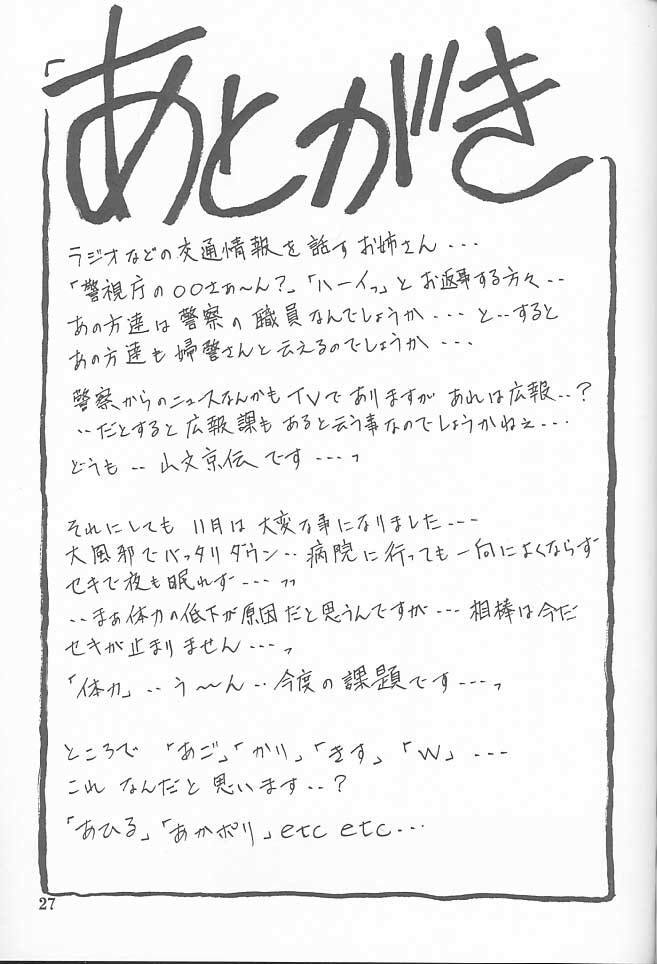 「あとがき
ラジオなどの交通情報を話すお姉さん・・・
「警視庁の〇〇さぁ〜ん?」「ハーイっ」とお返事する方々・・
あの方達は警察の職員なんでしょうか・・・と・・すると
あの方達も婦警さんと云えるのでしょうか・・・
警察からのニュースなんかもTVでありますがあれは広報・・?
・・だとすると広報課もあると云う事なのでしょうかねぇ・・・
どうも・・山文京伝です・・・っ
それにしても11月は大変な事になりました・・・
大風邪でバッタリダウン・・病院に行っても一向によくならず
セキで夜も眠れず・・・っっ
・・まぁ体力の低下が原因だと思うんですが・・・相棒は今だ
セキが止まりません・・・っ
「体力」・・う〜〜ん・・今度の課題です・・・っ
ところで「あご」「かり」「きす」「W」・・・
これなんだと思います・・?
「あひる」「あかポリ」etc etc・・・
27